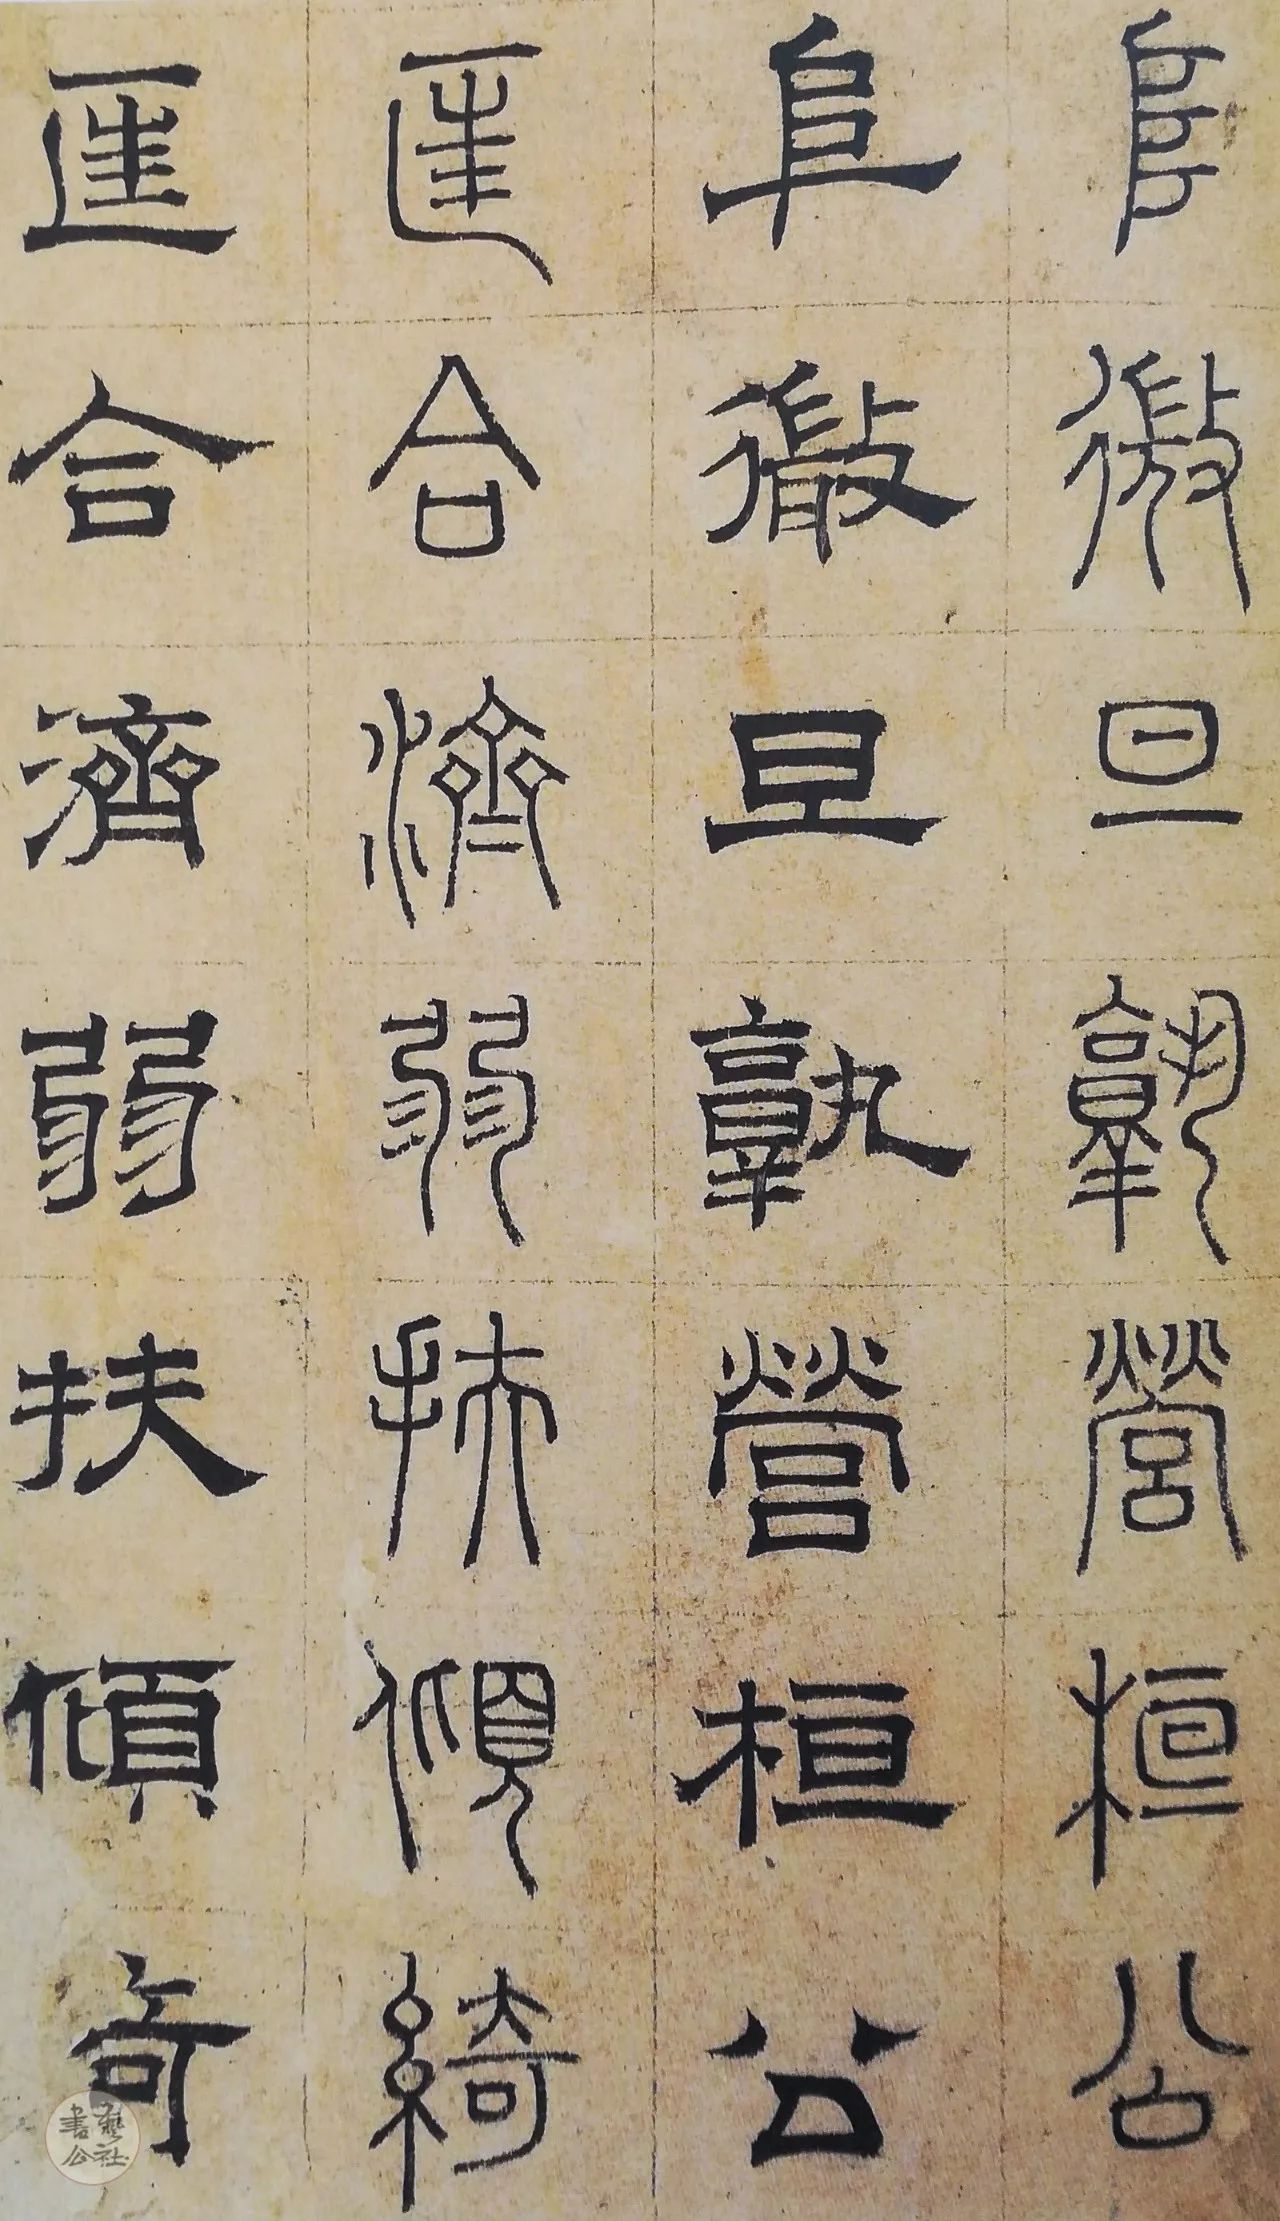 阜徽旦孰營桓公
阜徽旦孰營桓公
匡合濟弱扶傾綺
匡合濟弱扶傾奇
書藝公社